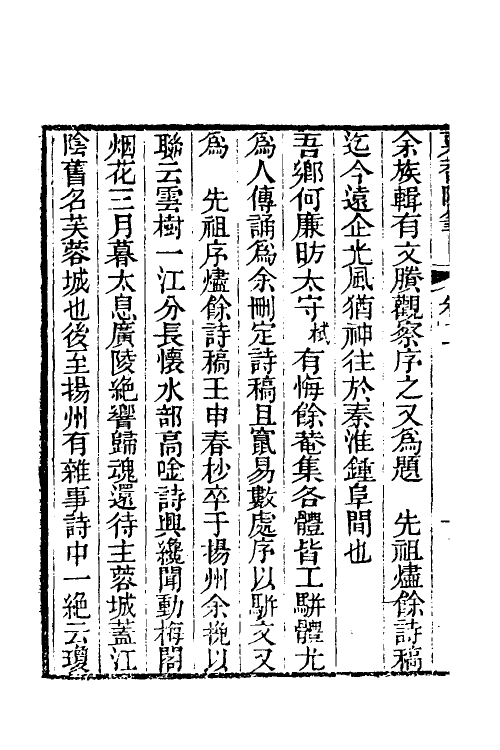 余族輯有文賸觀察序之又為題　先祖燼餘詩稿
迄今遠企光風猶神往於秦淮鍾阜間也
吾鄉何廉昉太守栻有悔餘菴集各體皆工駢體尤
為人傳誦為余刪定詩稿且竄易數處序以駢文又
為　先祖序燼餘詩稿壬申春杪卒于揚州余挽以
聯云雲樹一江分長懷水部高唫詩興纔聞動梅閣
烟花三月暮太息廣陵絶響歸魂還待主蓉城蓋江
陰舊名芙蓉城也後至揚州有雜事詩中一絶云瓊